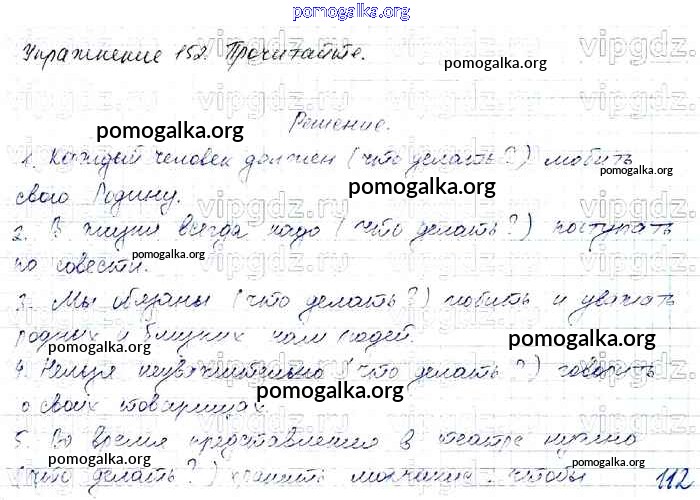 pomogalka.org
Упражнение 152. Прочитайте.
pomogalka.org
Решение.
pomogalka.org
1. Каждый человек должен (что делать?) любить
свою Родину.
pomogalka.org
2. В жизни всегда надо (что делать?) поступать
по совести.
pomogalka.org
3. Мы обязаны (что делать?) любить и уважать
родных и близких нам людей.
pomogalka.org
pomogalka.org
4. Нельзя неуважительно (что делать?) говорить
о своих товарищах.
pomogalka.org
5. Во время представления в театре нужно
(что делать?) хранить молчание, чтобы
112
vipgdz.ru